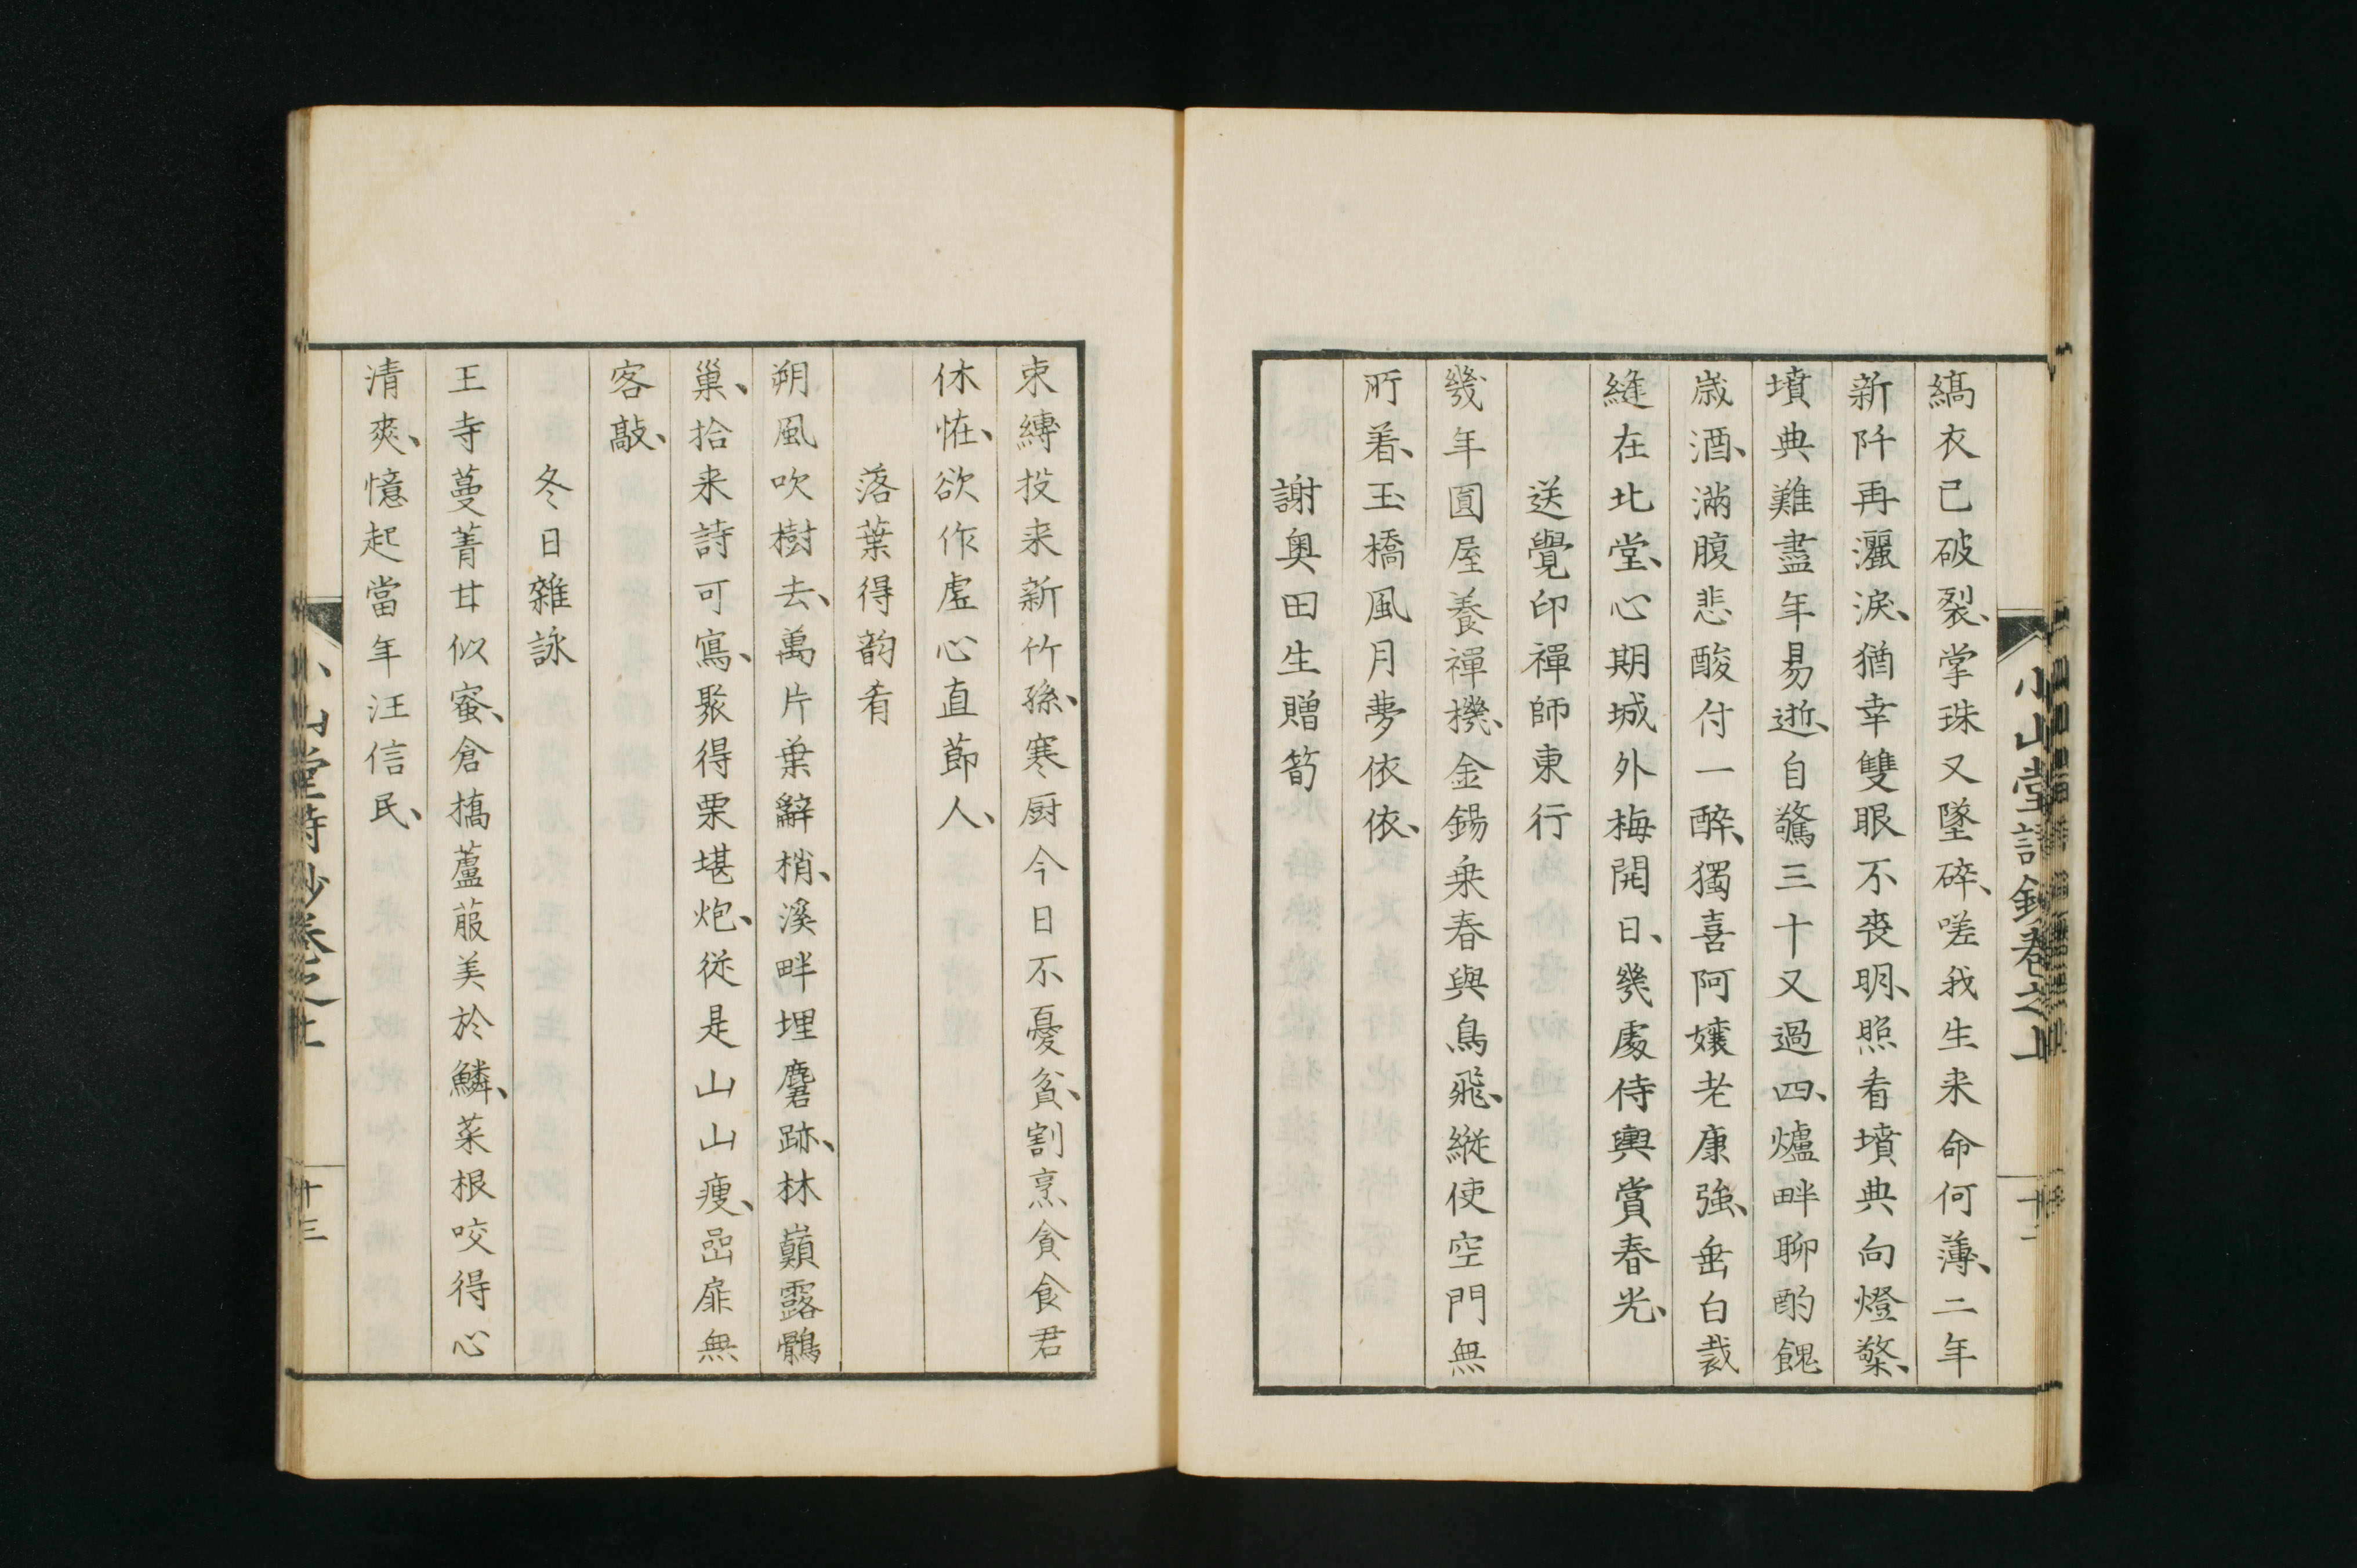 縞衣已破裂、掌珠又墜碎、嗟我生来命何薄、二年
新阡再灑淚、猶幸雙眼不喪明、照看墳典向燈檠、
墳典難盡年易逝、自驚三十又過四、爐畔聊酌餽
歳酒、滿腹悲酸付一醉、獨喜阿孃老康強、垂白裁
縫在北堂、心期城外梅開日、幾處侍輿賞春光、
送覺印禪師東行
幾年圓屋養禪機、金錫乗春與鳥飛、縱使空門無
所着、玉橋風月夢依依、
謝奥田生贈筍
小山堂詩鈔卷之上
十二
束縛投来新竹孫、寒厨今日不憂貧、割烹貪食君
休恠、欲作虚心直莭人、
落葉得韵肴
朔風吹樹去、萬片葉辭梢、溪畔埋麏跡、林巔露鶻
巢、拾来詩可寫、聚得栗堪炮、従是山山瘦、嵒扉無
客敲、
冬日雜詠
王寺蔓菁甘似蜜、倉橋蘆菔美於鱗、菜根咬得心
清爽、憶起當年汪信民、
小山堂詩鈔卷之上
十三